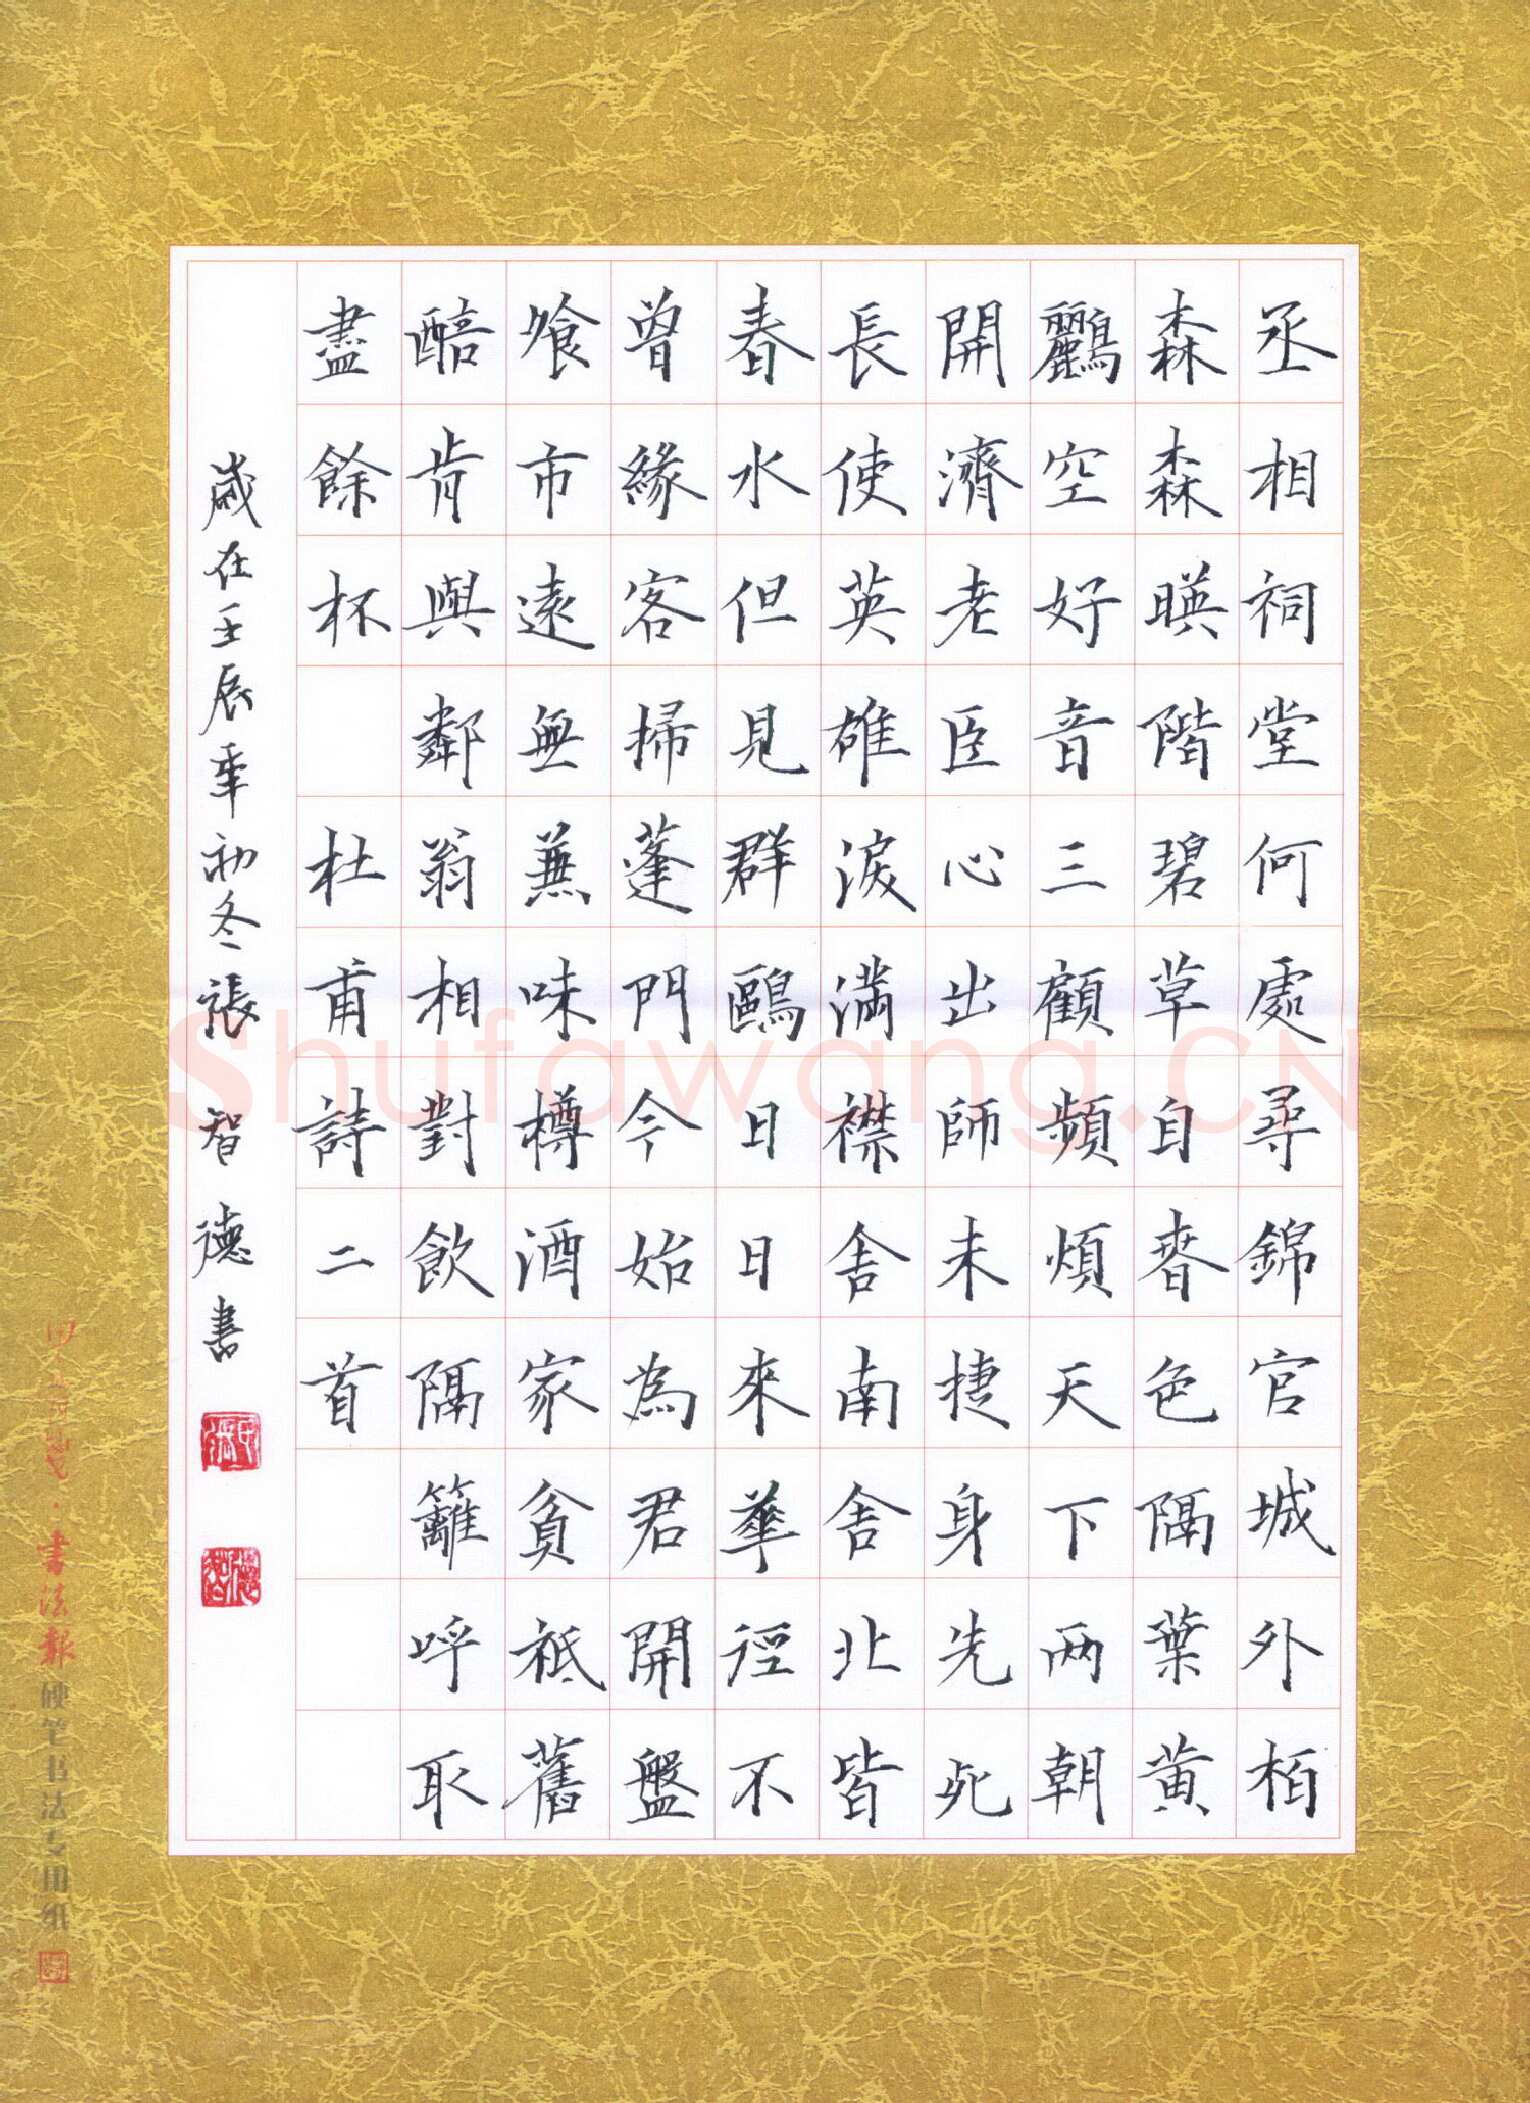 丞相祠堂何處尋錦官城外柏
森森暎階碧草自春色隔葉黄
鸝空好音三顧頻煩天下两朝
開濟老臣心出師未捷身先死
長使英雄淚滿襟舍南舍北皆
春水但見群鷗日日來華徑不
曾緣客掃蓬門今始為君開盤
飱市遠無蒹味樽酒家貧祇舊
醅肯與鄰翁相對飲隔籬呼取
盡餘杯 杜甫詩二首
歲在壬辰年初冬張智德書
書法報 硬笔书法专用纸
Shufawang.CN